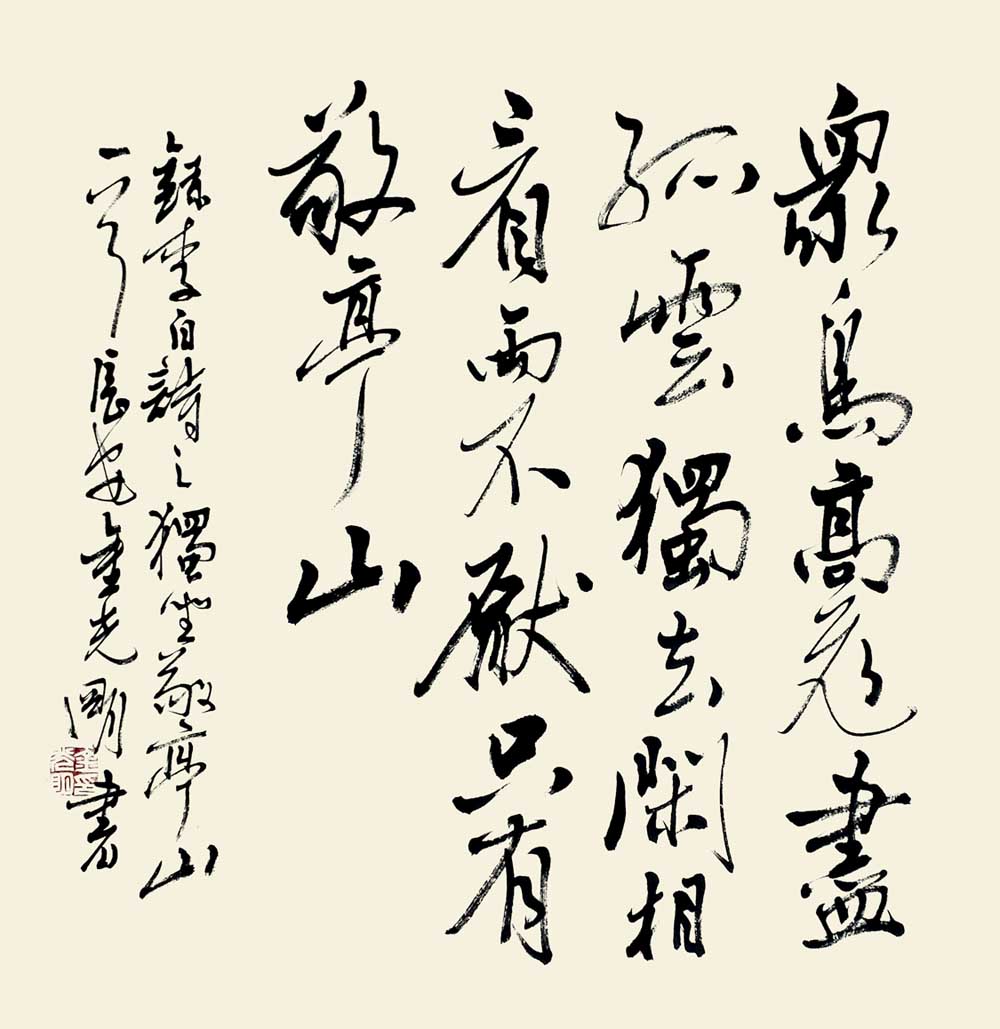 眾鳥高飛盡
孤雲獨去閑相
看兩不厭只有
敬亭山
錄李白詩之獨坐敬亭山
一首長安光剛書